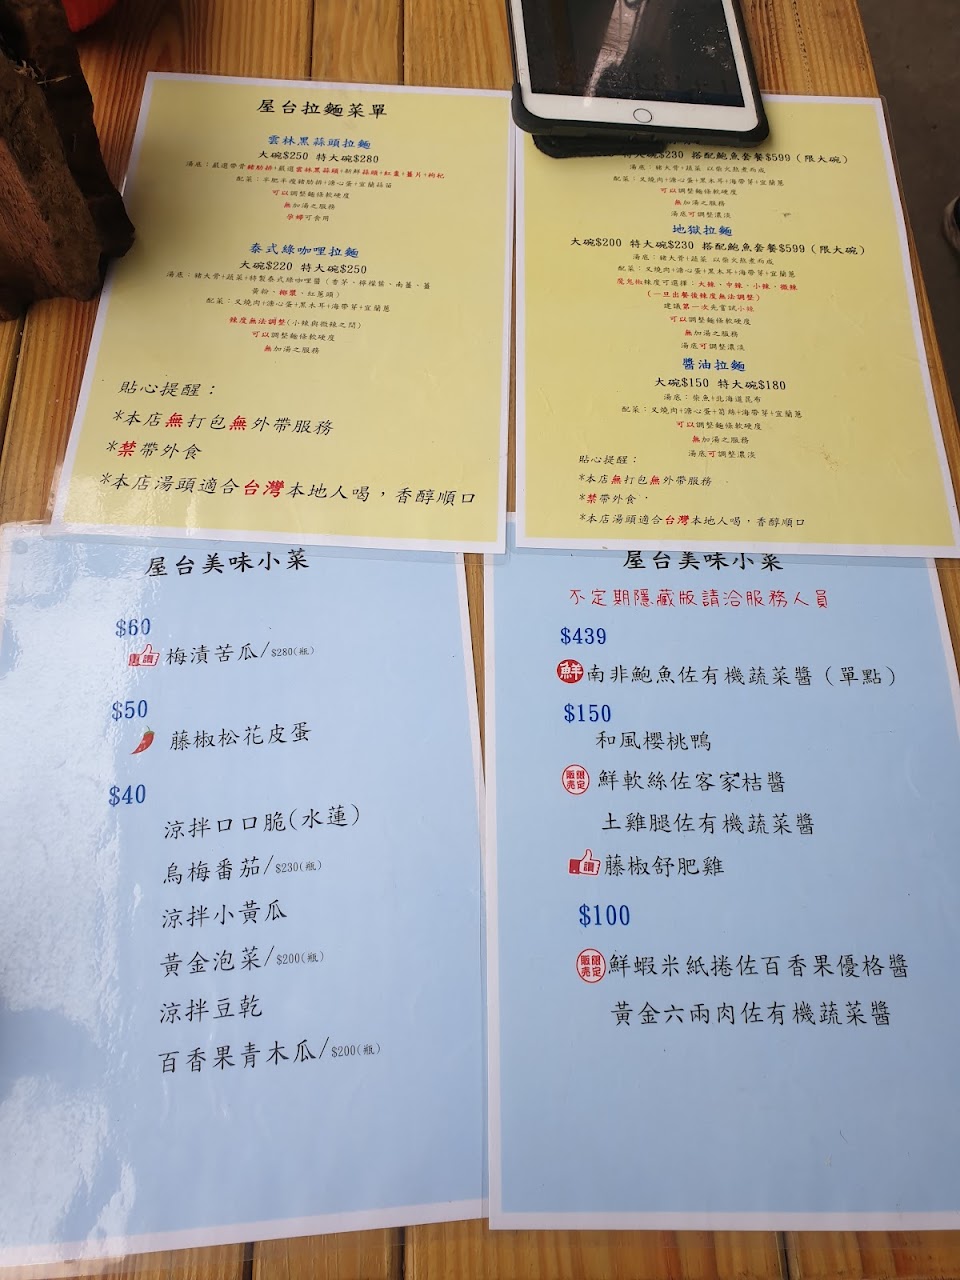 屋台拉麵菜單
雲林黑蒜頭拉麵
大碗$250 特大碗$280
湯底：嚴選帶骨豬肋排+嚴選雲林黑蒜頭+新鮮蒜頭+紅棗+薑片+枸杞
配菜：半肥半瘦豬肋排+溏心蛋+宜蘭蒜苗
可以調整麵條軟硬度
無加湯之服務
孕婦可食用
泰式綠咖哩拉麵
大碗$220 特大碗$250
湯底：豬大骨+蔬菜+特製泰式綠咖哩醬（香茅、檸檬葉、南薑、薑
黃粉、椰漿、紅蔥頭）
配菜：叉燒肉+溏心蛋+黑木耳+海帶芽+宜蘭蔥
辣度無法調整(小辣與微辣之間)
可以調整麵條軟硬度
無加湯之服務
貼心提醒：
*本店無打包無外帶服務
*禁帶外食
*本店湯頭適合台灣本地人喝，香醇順口
特大碗$230 搭配鮑魚套餐$599（限大碗）
湯底：豬大骨+蔬菜 以柴火熬煮而成
配菜：叉燒肉+溏心蛋+黑木耳+海帶芽+宜蘭蔥
可以調整麵條軟硬度
無加湯之服務
湯底可調整濃淡
地獄拉麵
大碗$200 特大碗$230 搭配鮑魚套餐$599（限大碗）
湯底：豬大骨+蔬菜 以柴火熬煮而成
配菜：叉燒肉+溏心蛋+黑木耳+海帶芽+宜蘭蔥
魔鬼椒辣度可選擇：大辣、中辣、小辣、微辣
(一旦出餐後辣度無法調整)
建議第一次先嘗試小辣
可以調整麵條軟硬度
無加湯之服務
湯底可調整濃淡
醬油拉麵
大碗$150 特大碗$180
湯底：柴魚+北海道昆布
配菜：叉燒肉+溏心蛋+筍絲+海帶芽+宜蘭蔥
可以調整麵條軟硬度
無加湯之服務
湯底可調整濃淡
貼心提醒：
*本店無打包無外帶服務
*禁帶外食
*本店湯頭適合台灣本地人喝，香醇順口
屋台美味小菜
$60
讚 梅漬苦瓜/$280(瓶)
$50
藤椒松花皮蛋
$40
涼拌口口脆(水蓮)
烏梅番茄/$230(瓶)
涼拌小黃瓜
黃金泡菜/$200(瓶)
涼拌豆乾
百香果青木瓜/$200(瓶)
屋台美味小菜
不定期隱藏版請洽服務人員
$439
鮮 南非鮑魚佐有機蔬菜醬（單點）
$150
和風櫻桃鴨
限定販売 鮮軟絲佐客家桔醬
土雞腿佐有機蔬菜醬
讚 藤椒舒肥雞
$100
限定販売 鮮蝦米紙捲佐百香果優格醬
黃金六兩肉佐有機蔬菜醬